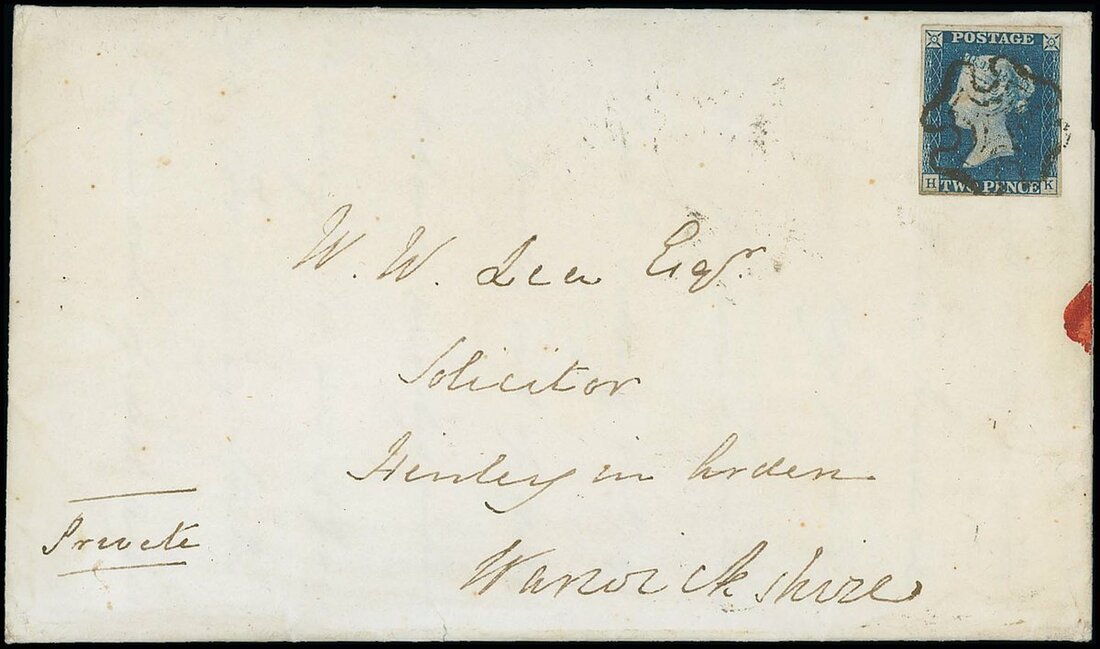 POSTAGE
H TWO PENCE K
W. W. Lea Esqr
Solicitor
Henley in Arden
Warwickshire
Private